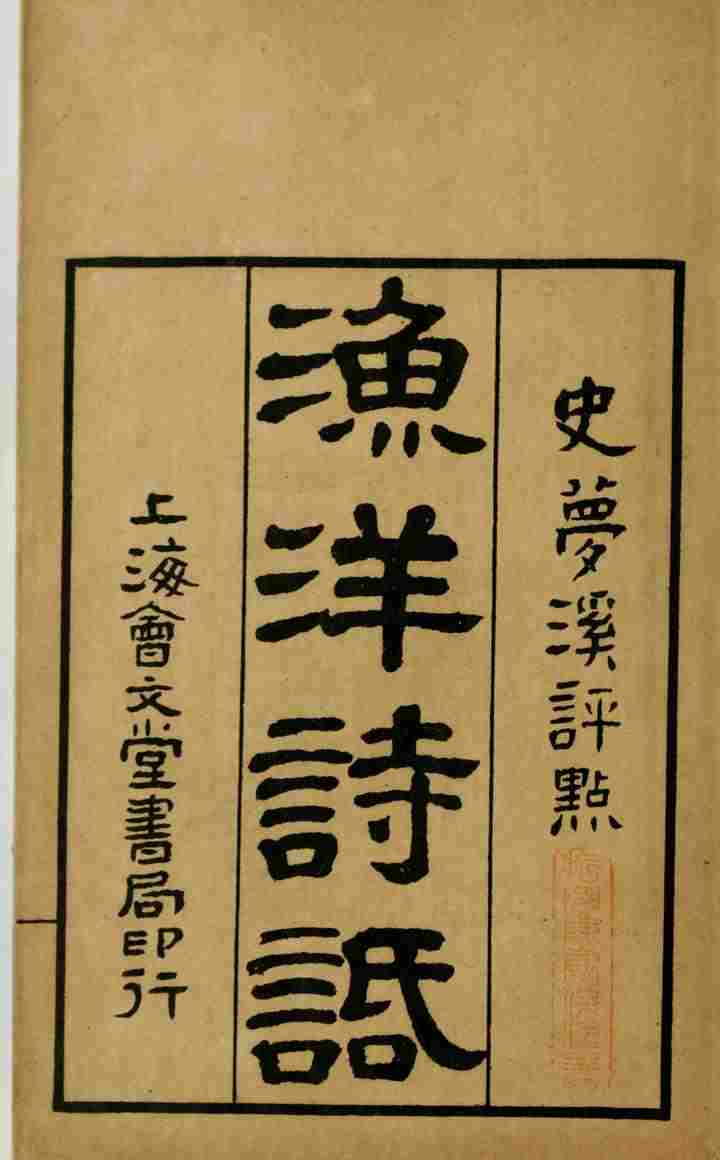 史夢溪評點
漁洋詩話
上海會文堂書局印行